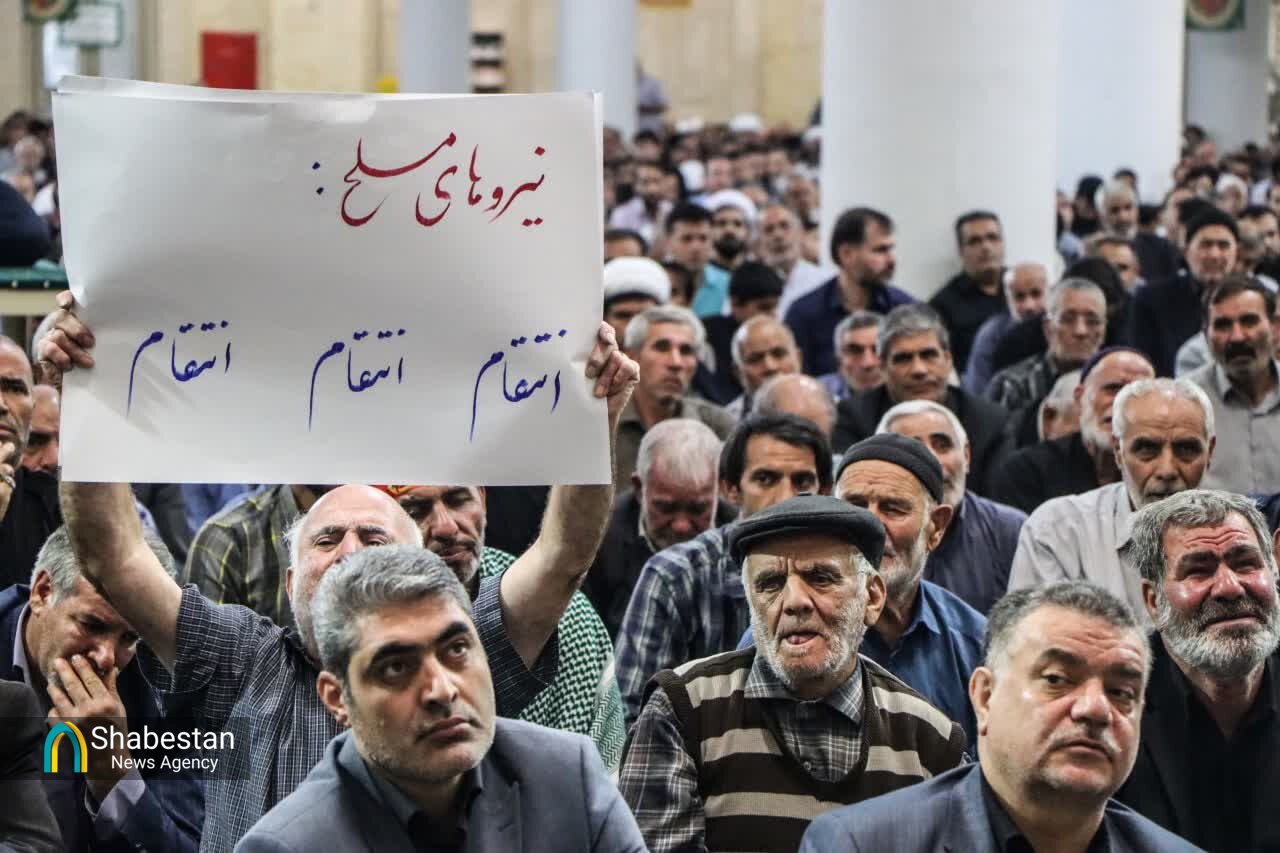 نیروهای مسلح :
انتقام انتقام انتقام
Shabestan
News Agency